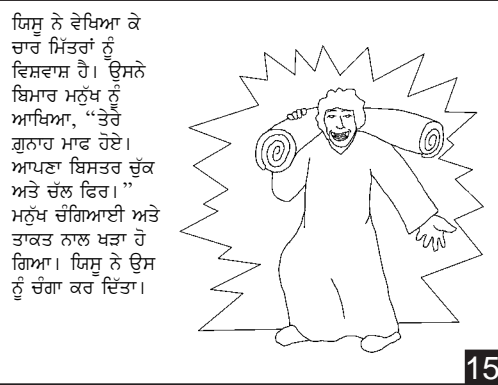 ਯਿਸੂ ਨੇ ਵੇਖਿਆ ਕੇ
ਚਾਰ ਮਿੱਤਰਾਂ ਨੂੰ
ਵਿਸ਼ਵਾਸ਼ ਹੈ। ਉਸਨੇ
ਬਿਮਾਰ ਮਨੁੱਖ ਨੂੰ
ਆਖਿਆ, “ਤੇਰੇ
ਗੁਨਾਹ ਮਾਫ ਹੋਏ।
ਆਪਣਾ ਬਿਸਤਰ ਚੁੱਕ
ਅਤੇ ਚੱਲ ਫਿਰ।”
ਮਨੁੱਖ ਚੰਗਿਆਈ ਅਤੇ
ਤਾਕਤ ਨਾਲ ਖੜਾ ਹੋ
ਗਿਆ। ਯਿਸੂ ਨੇ ਉਸ
ਨੂੰ ਚੰਗਾ ਕਰ ਦਿੱਤਾ।
15